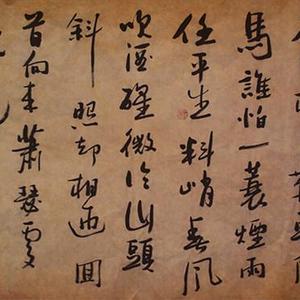 馬誰怕一蓑煙雨
任平生料峭春風
吹酒醒微冷山頭
斜照却相迎回
首向来蕭瑟處